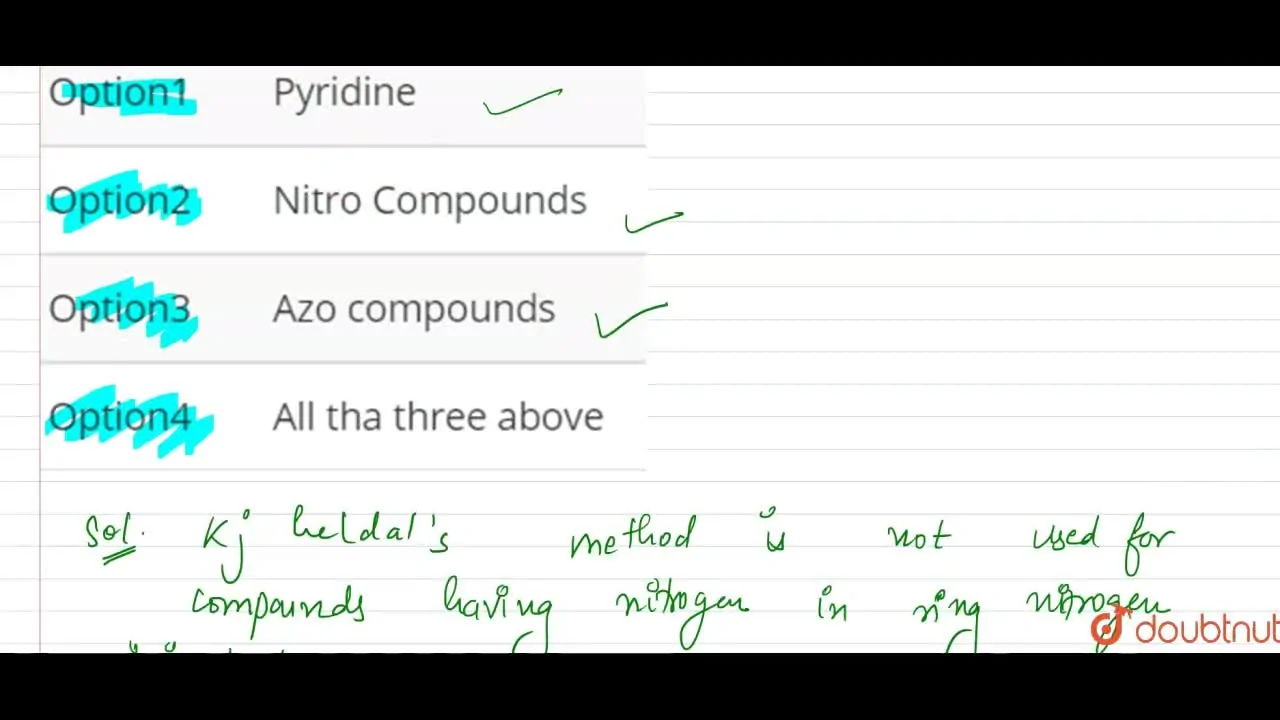 Option1 Pyridine
Option2 Nitro Compounds
Option3 Azo compounds
Option4 All tha three above
Sol. Kjheldal's method is not used for
compounds having nitrogen in ring nitrogen
doubtnut